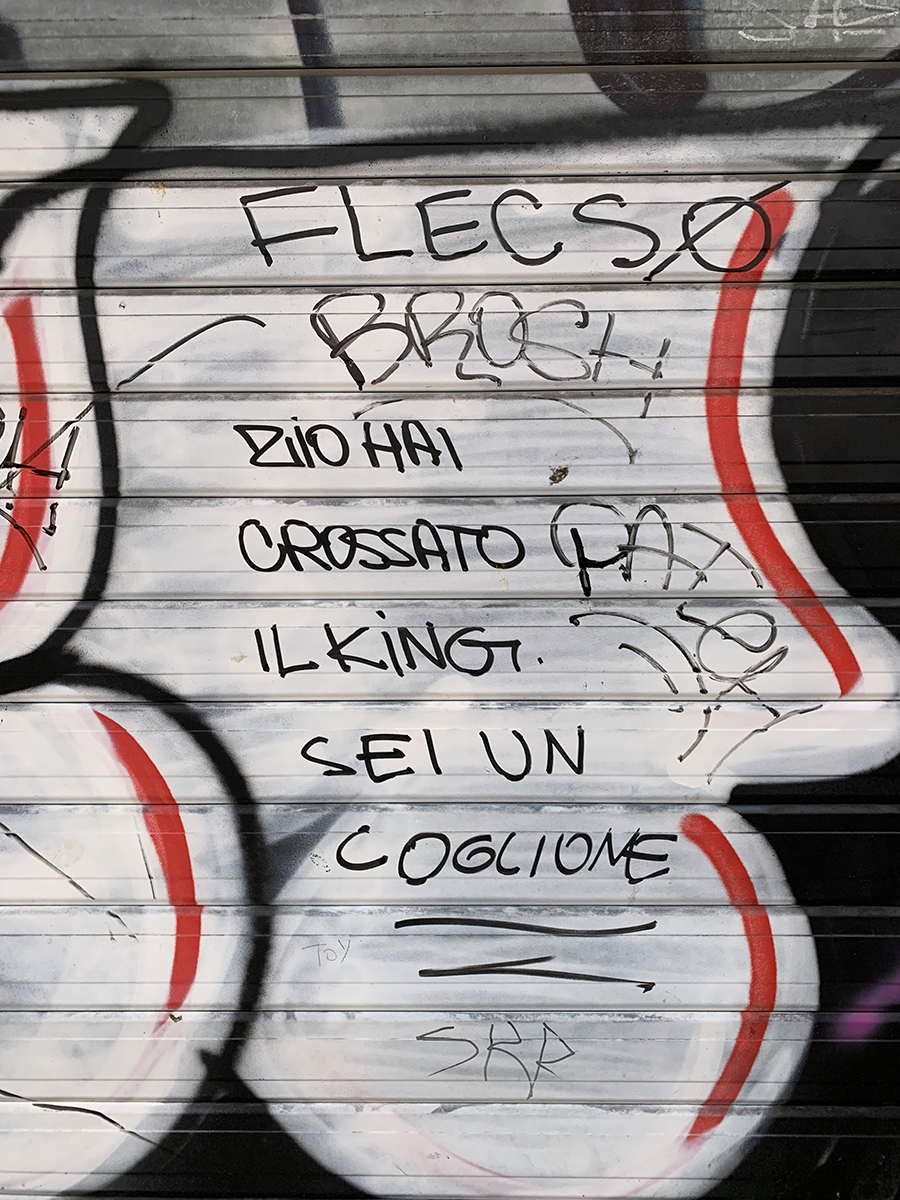 FLECSØ
BROSH
ZIIO HAI
CROSSATO
IL KING.
SEI UN
COGLIONE
TOY
SKR